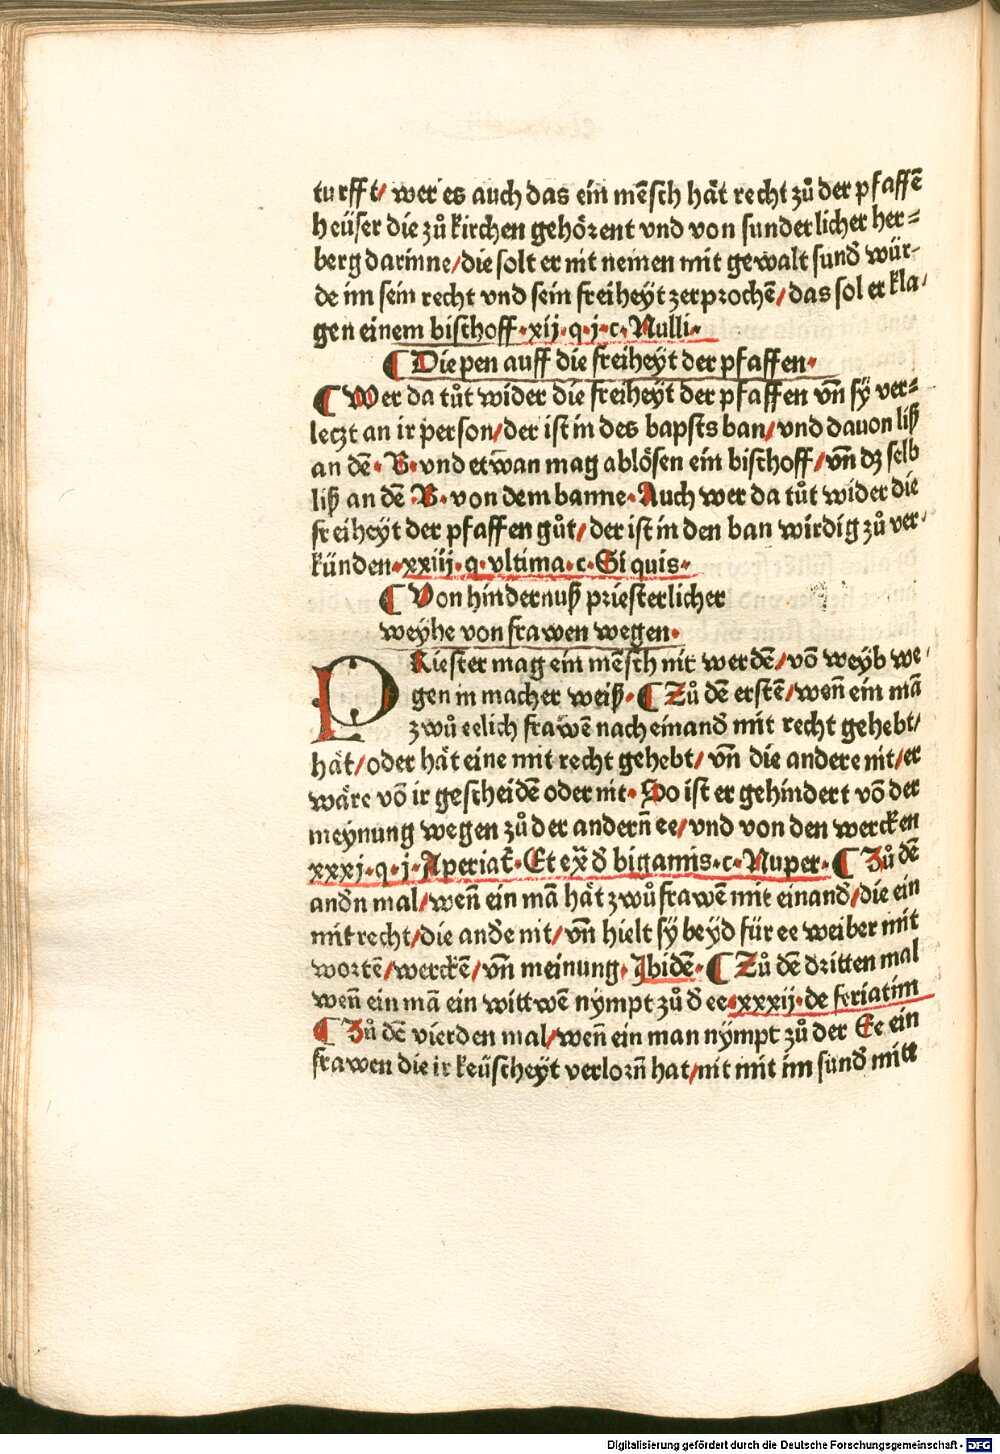 turfft/ wer es auch das ein mēsch hät recht zů der pfaffē
heüser die zů kirchen gehörent vnd von sunderlicher her=
berg darinne/die solt er nit nemen mit gewalt sunđ wür-
de im sein recht vnd sein freiheÿt zerprochē/das sol er kla-
gen einem bischoff·xij·q·j·c·Nulli·
¶ Die pen auff die freiheÿt der pfaffen·
¶ Wer da tůt wider die freiheÿt der pfaffen vn̄ sÿ ver=
leczt an ir person/der ist in des bapsts ban/vnd dauon liß
an dē·B·vnd etwan mag ablösen ein bischoff/vn̄ dz selb
liß an dē·B·von dem banne·Auch wer da tůt wider die
freiheÿt der pfaffen gůt/der ist in den ban wirdig zů ver-
künden·xxiij·q·vltima·c·Si quis·
¶ Von hindernuß priesterlicher
weÿhe von frawen wegen·
PRiester mag ein mēsch nit werdē/vō weÿb we-
gen in macher weiß·¶ Zů dē erstē/wen̄ ein mā
zwů eelich frawen nach einanđ mit recht gehebt/
hät/oder hät eine mit recht gehebt/ vn̄ die andere nit/er
wäre vō ir gescheidē oder nit·So ist er gehindert vō der
meÿnung wegen zů der andern̄ ee/vnd von den wercken
xxxj·q·j·Aperiat̄·Et ex̄ đ bigamis·c·Nuper·¶ Zů dē
andn mal/wen̄ ein mā hät zwů frawē mit einanđ/die ein
mit recht/die andē nit/vn̄ hielt sÿ beÿd für ee weiber mit
wortē/werckē/vn̄ meinung·Ibidē·¶ Zů dē dritten mal
wen̄ ein mā ein wittwē nÿmpt zů đ ee·xxxij·de feriatim
¶ Zů dē vierden mal/wen̄ ein man nÿmpt zů der Ee ein
frawen die ir keüscheÿt verlorn̄ hat/nit mit im sunđ mitt
Digitalisierung gefördert durch die Deutsche Forschungsgemeinschaft - DFG